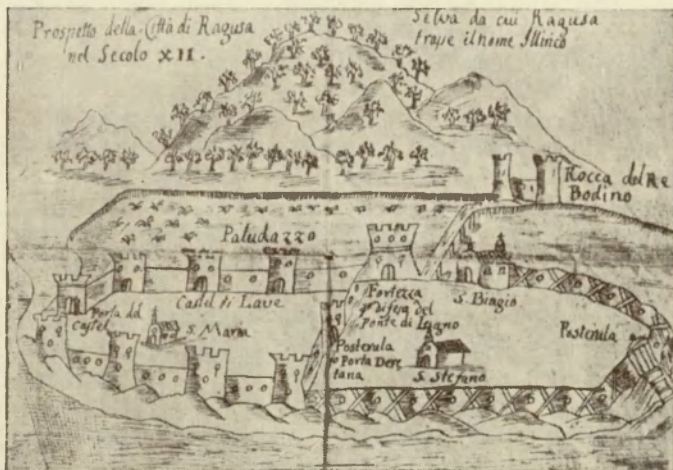 Prospetto della Città di Ragusa
nel Secolo XII.
Selva da cui Ragusa
trasse il nome Illirico
Rocca del Re
Bodino
Paludazzo
Castel di Lave
Porta del
Castel
S. Maria
Fortezza
difesa del
Ponte di Legno
S. Biagio
Posterula
o Porta
S. Stefano
Posterula